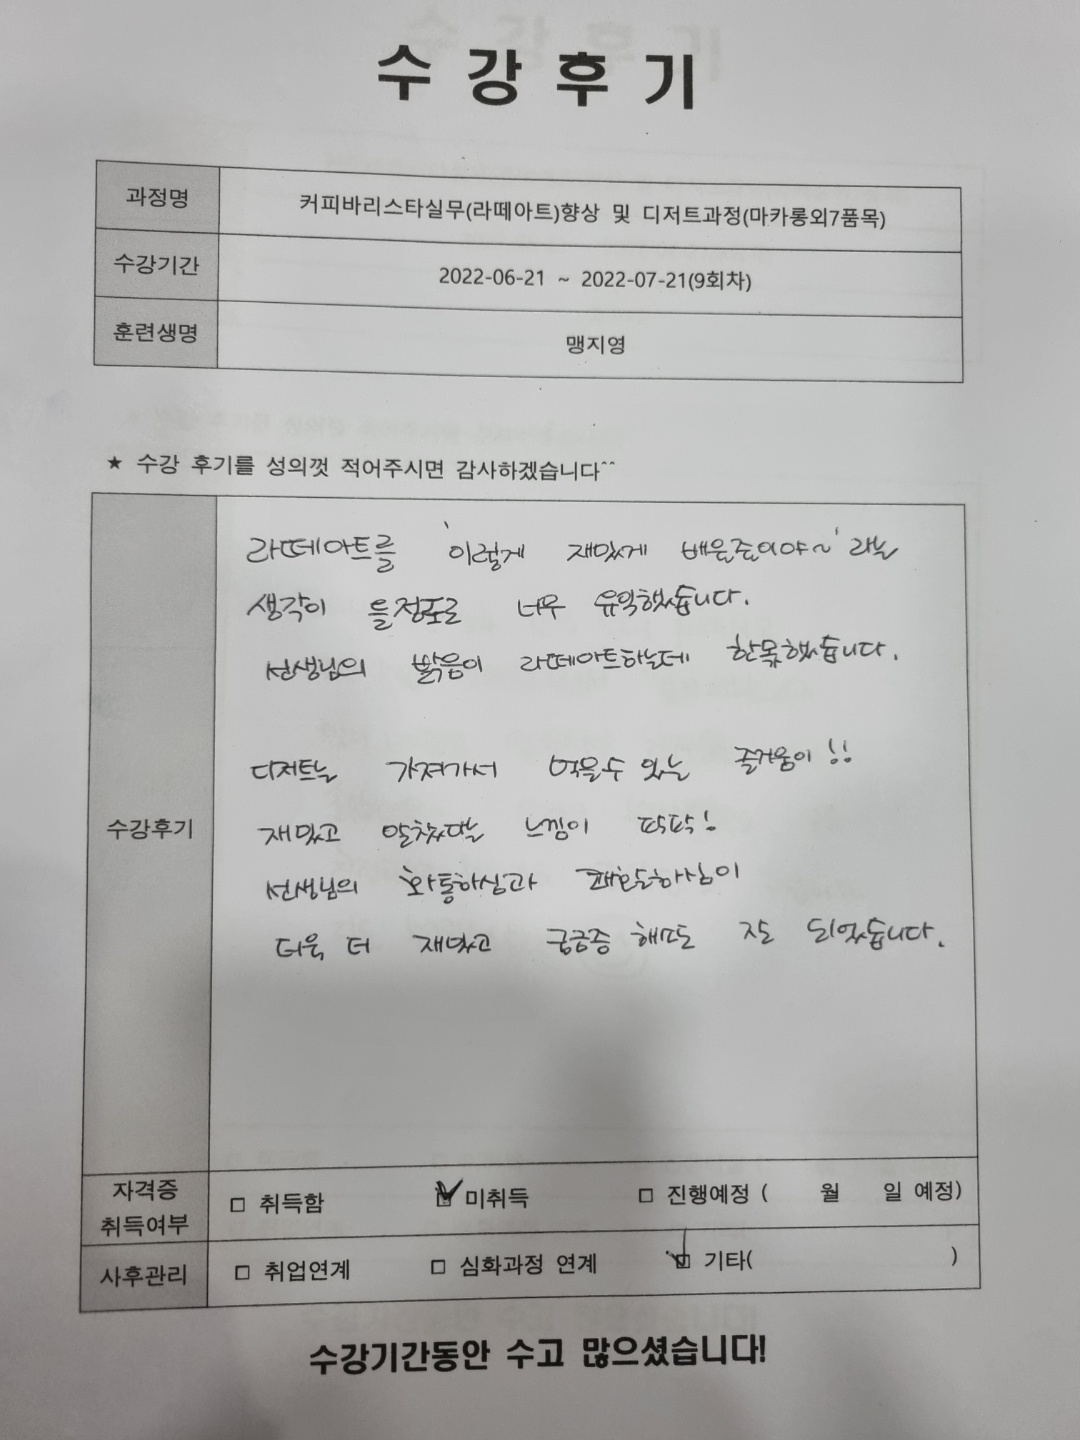 수 강 후 기
과정명 커피바리스타실무(라떼아트)향상 및 디저트과정(마카롱외7품목)
수강기간 2022-06-21 ~ 2022-07-21(9회차)
훈련생명 맹지영
★ 수강 후기를 성의껏 적어주시면 감사하겠습니다^^
라떼아트를 '이렇게 재밌게 배운준이야~' 라는
생각이 들정도로 너무 유익했습니다.
선생님의 밝음이 라떼아트하는데 한몫했습니다.
디저트는 가져가서 먹을수 있는 즐거움이!!
수강후기
재밌고 알찼다는 느낌이 팍팍!
선생님의 화통하심과 쾌활하심이
더욱 더 재밌고 궁금증 해소도 되었습니다.
자격증 취득여부 □ 취득함 ☑ 미취득 □ 진행예정 ( 월 일 예정)
사후관리 □ 취업연계 □ 심화과정 연계 ☑ 기타( )
수강기간동안 수고 많으셨습니다!